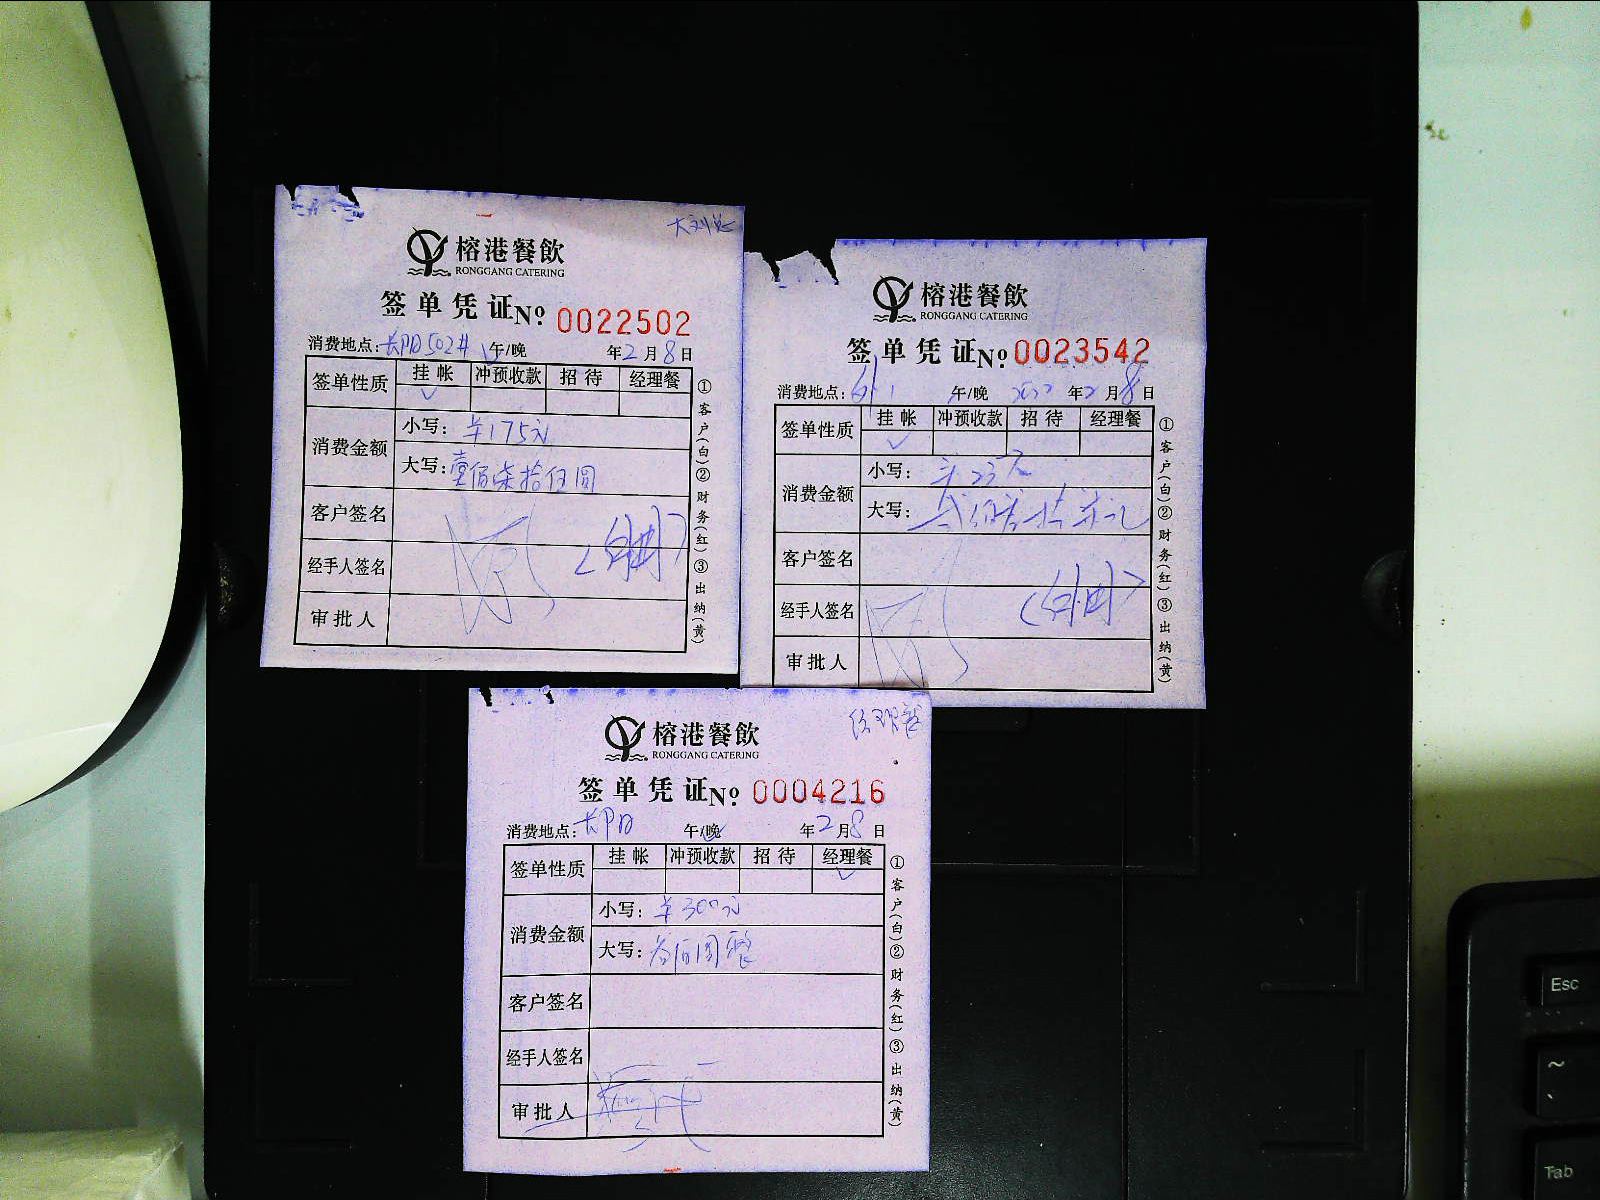 榕港餐飲
RONGGANG CATERING
签单凭证 No 0022502
消费地点: 502# 午/晚 年2月8日
签单性质 挂帐 冲预收款 招待 经理餐
消费金额 小写: ¥175元
大写: 壹佰柒拾伍圆
客户签名
经手人签名 (自用)
审批人
①客户(白)②财务(红)③出纳(黄)
榕港餐飲
RONGGANG CATERING
签单凭证 No 0023542
消费地点: 午/晚 年2月8日
签单性质 挂帐 冲预收款 招待 经理餐
消费金额 小写:
大写:
客户签名
经手人签名 (自用)
审批人
①客户(白)②财务(红)③出纳(黄)
榕港餐飲
RONGGANG CATERING
签单凭证 No 0004216
消费地点: 午/晚 年2月8日
签单性质 挂帐 冲预收款 招待 经理餐
消费金额 小写: ¥300元
大写: 叁佰圆整
客户签名
经手人签名
审批人
①客户(白)②财务(红)③出纳(黄)
Esc
~
Tab